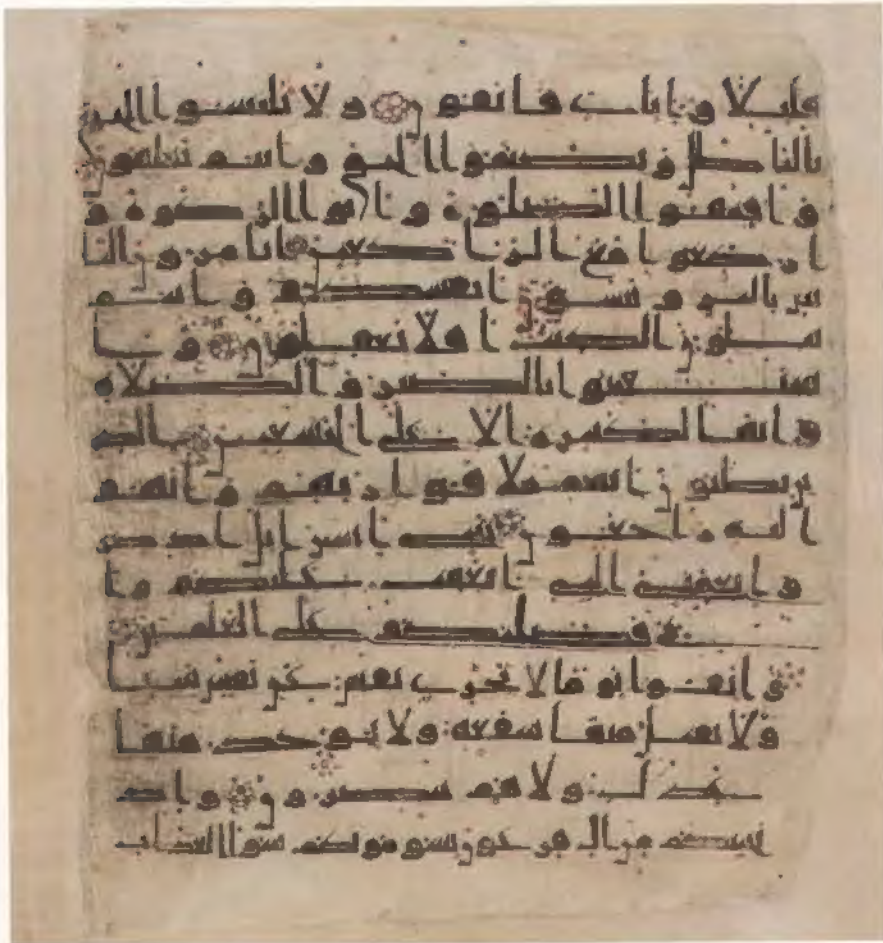 قليلا وايي فاتقون ولا تلبسوا الحق
بالباطل وتكتموا الحق وانتم تعلمون
واقيموا الصلوة واتوا الزكوة و
اركعوا مع الركعين اتامرون النا
س بالبر وتنسون انفسكم وانتم
تتلون الكتب افلا تعقلون وا
ستعينوا بالصبر والصلاه
وانها لكبيرة الا على الخشعين الذ
ين يظنون انهم ملاقوا ربهم وانهم
اليه راجعون يبني اسرايل اذكر
وا نعمتي التي انعمت عليكم وا
ني فضلتكم على العلمين
واتقوا يوما لا تجزي نفس عن نفس شيا
ولا يقبل منها شفعة ولا يوخذ منها
عدل ولا هم ينصرون واذ
نجينكم من ال فرعون يسومونكم سوا العذاب